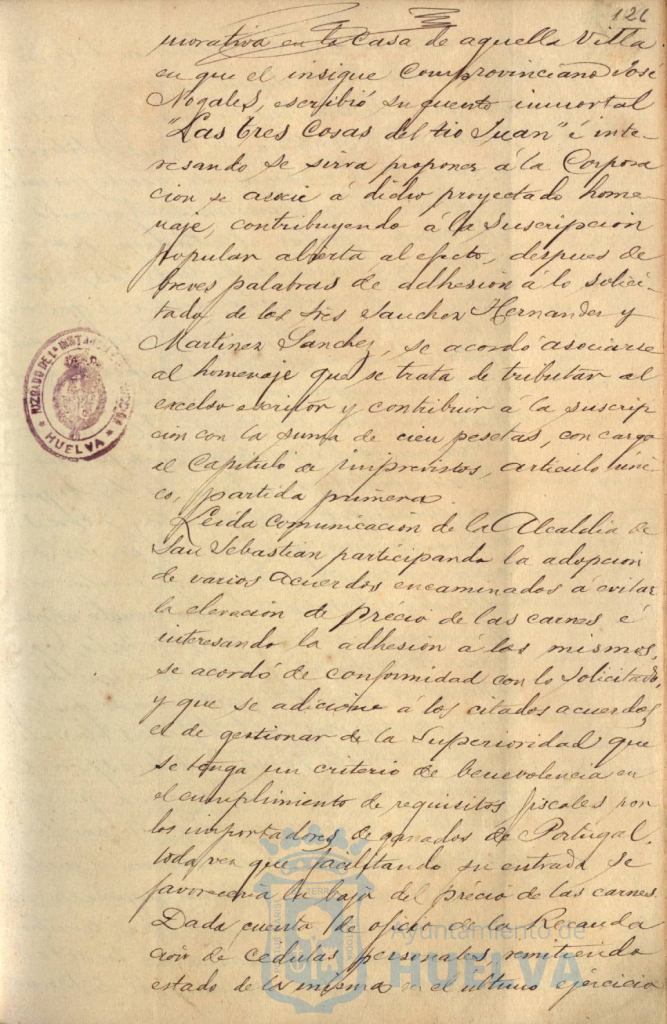 126
morativa en la Casa de aquella Villa
en que el insigne Comprovinciano José
Nogales, escribió su cuento inmortal
"Las tres Cosas del tio Juan" é inte-
resando se sirva proponer á la Corpora
cion se asocie á dicho proyectado home-
naje, contribuyendo á la Suscripcion
popular abierta al efecto, despues de
breves palabras de adhesion á lo solici-
tado, de los Sres Sanchez Hernandez y
Martinez Sanchez, se acordó asociarse
al homenaje que se trata de tributar al
excelso escritor y contribuir á la suscrip
cion con la suma de cien pesetas, con cargo
al Capitulo de imprevistos, articulo úni-
co, partida primera.
Leida comunicacion de la Alcaldia de
San Sebastian participando la adopcion
de varios acuerdos encaminados á evitar
la elevacion de précio de las carnes é
interesando la adhesión á los mismos,
se acordó de conformidad con lo solicitado,
y que se adicione á los citados acuerdos,
el de gestionar de la Superioridad que
se tenga un criterio de benevolencia en
el cumplimiento de requisitos fiscales por
los importadores de ganados de Portugal,
toda vez que facilitando su entrada se
favoreceria la baja del précio de las carnes.
Dada cuenta de oficio de la Recauda
cion de cedulas personales, remitiendo
estado de la misma en el ultimo ejercicio
HUELVA
Ayuntamiento de
HUELVA